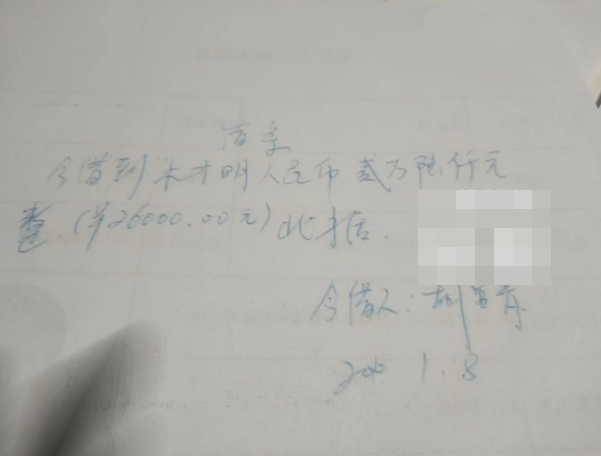 借条
今借到木才明人民币贰万陆仟元
整(¥26000.00元)此据.
今借人:胡
1.8